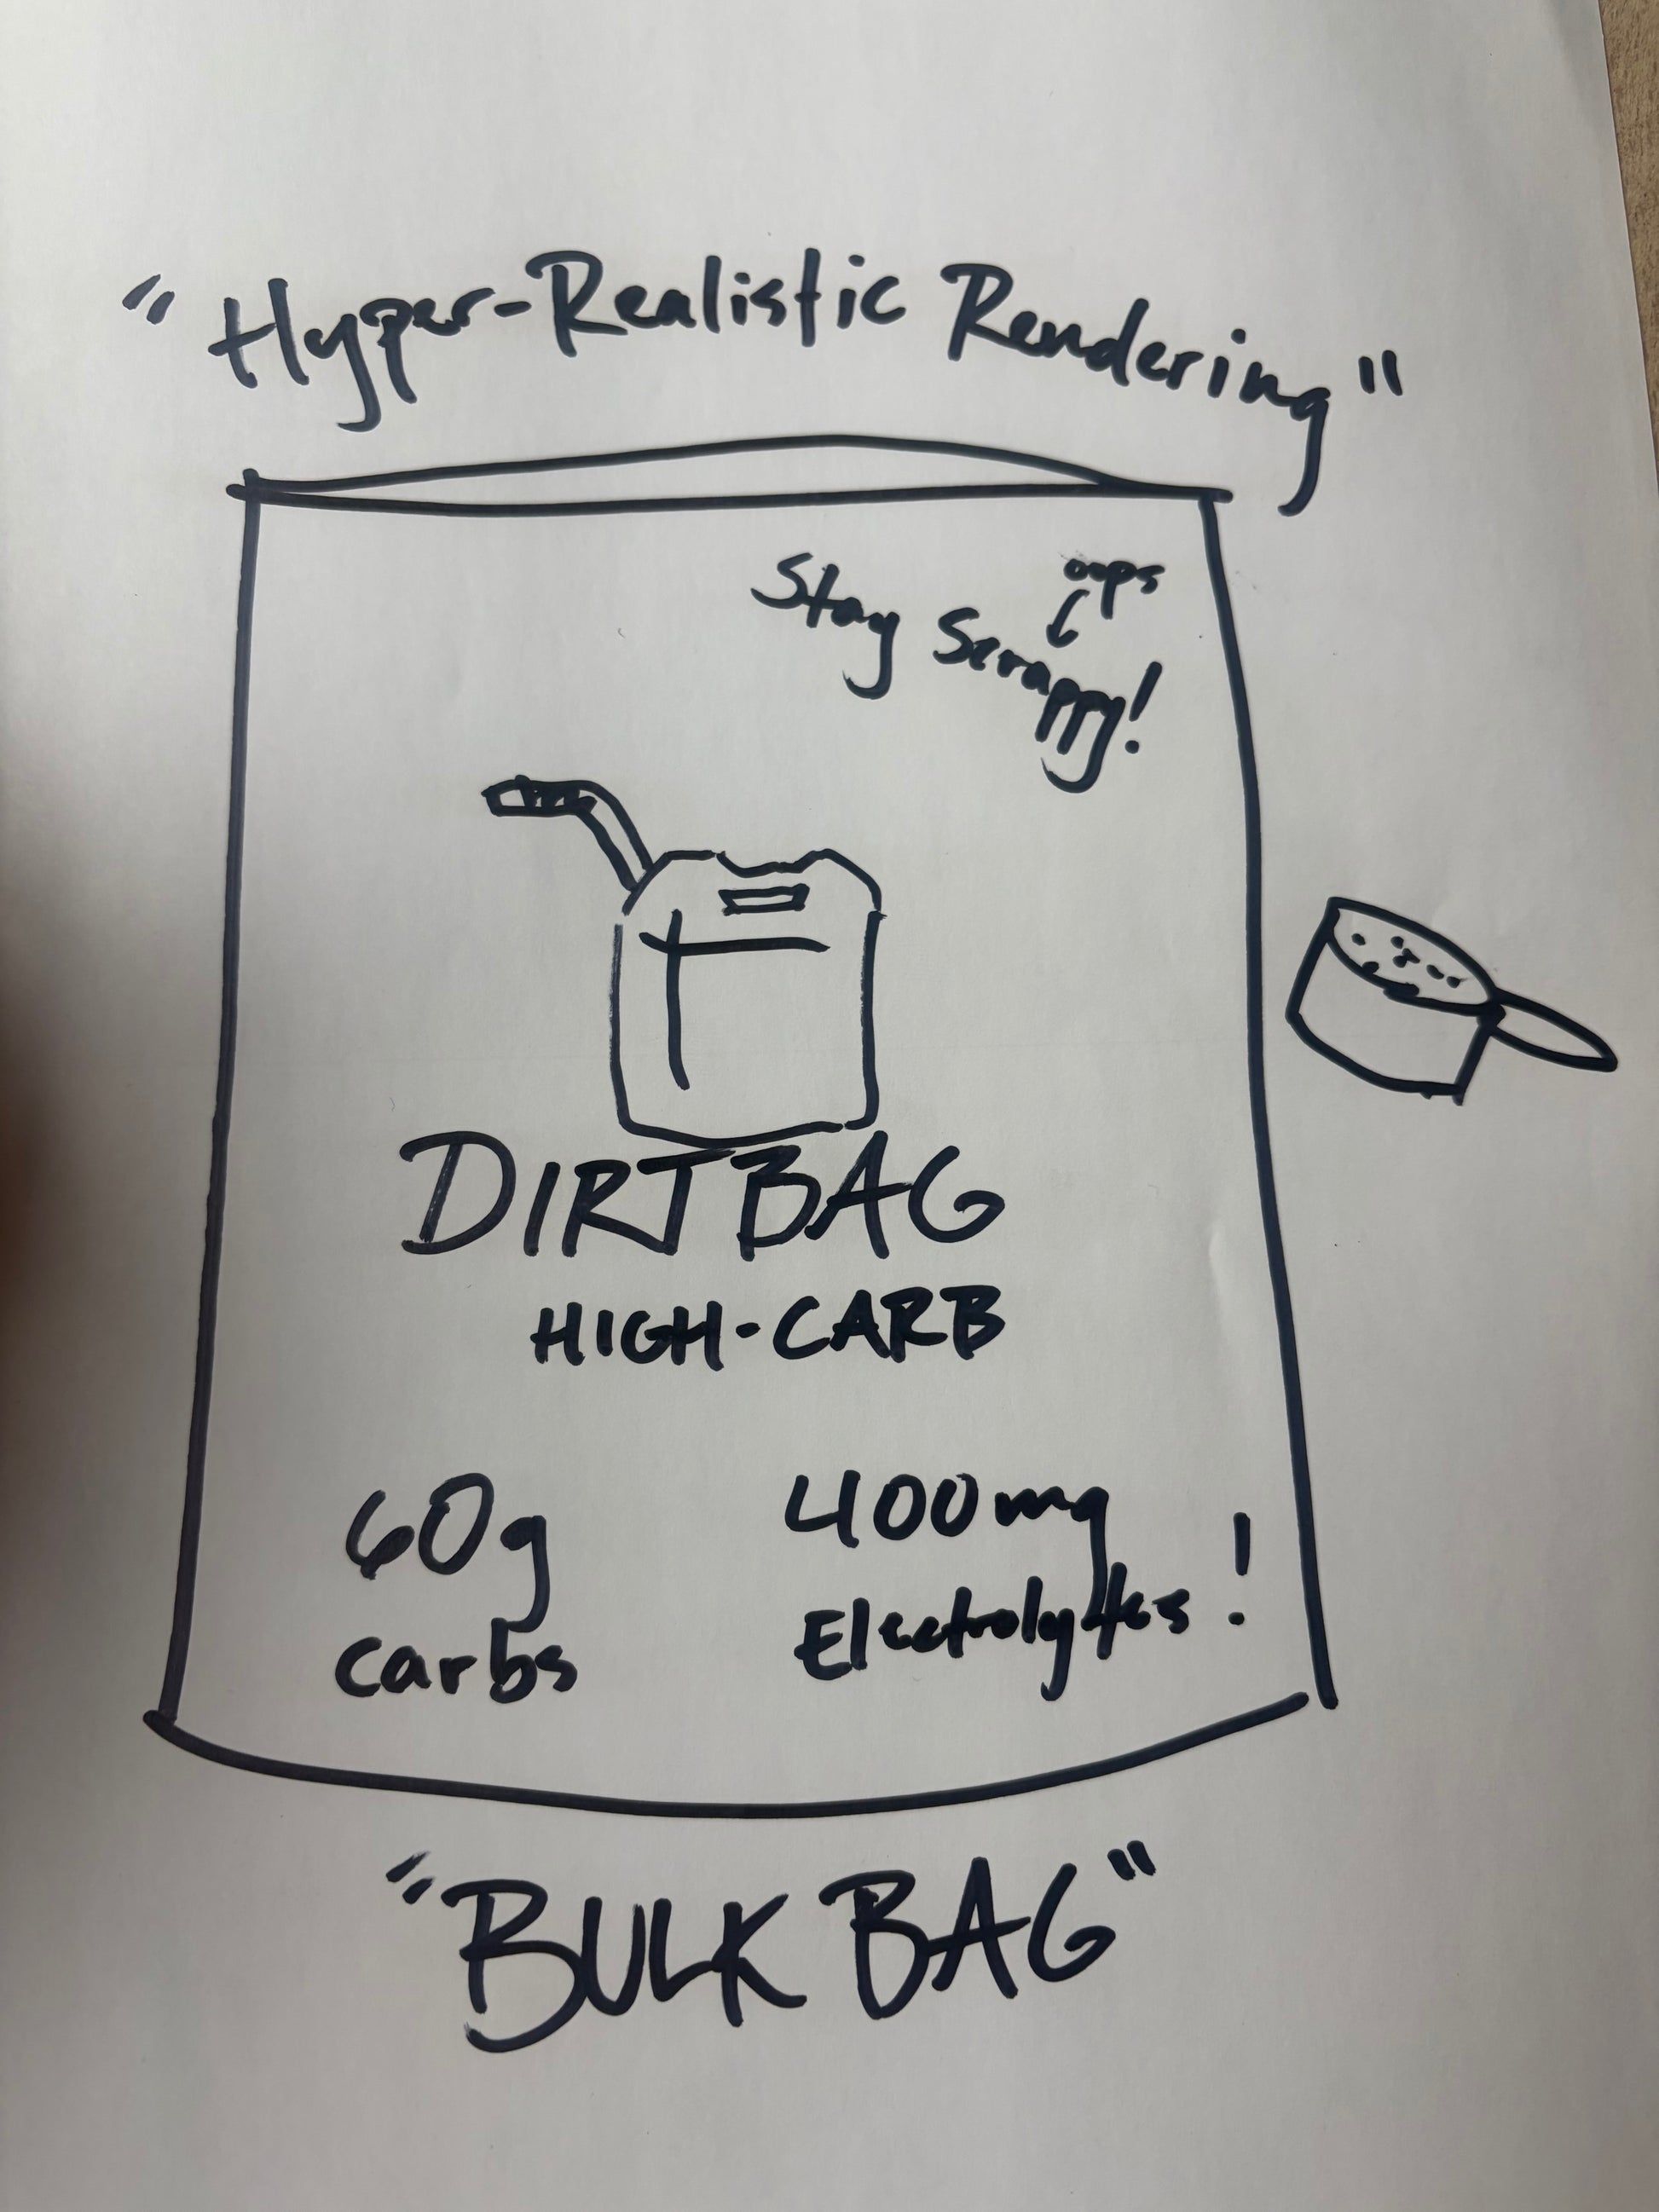 "Hyper-Realistic Rendering"
oops
Stay Scrappy!
DIRTBAG
HIGH-CARB
60g
carbs
400mg
Electrolytes!
"BULK BAG"